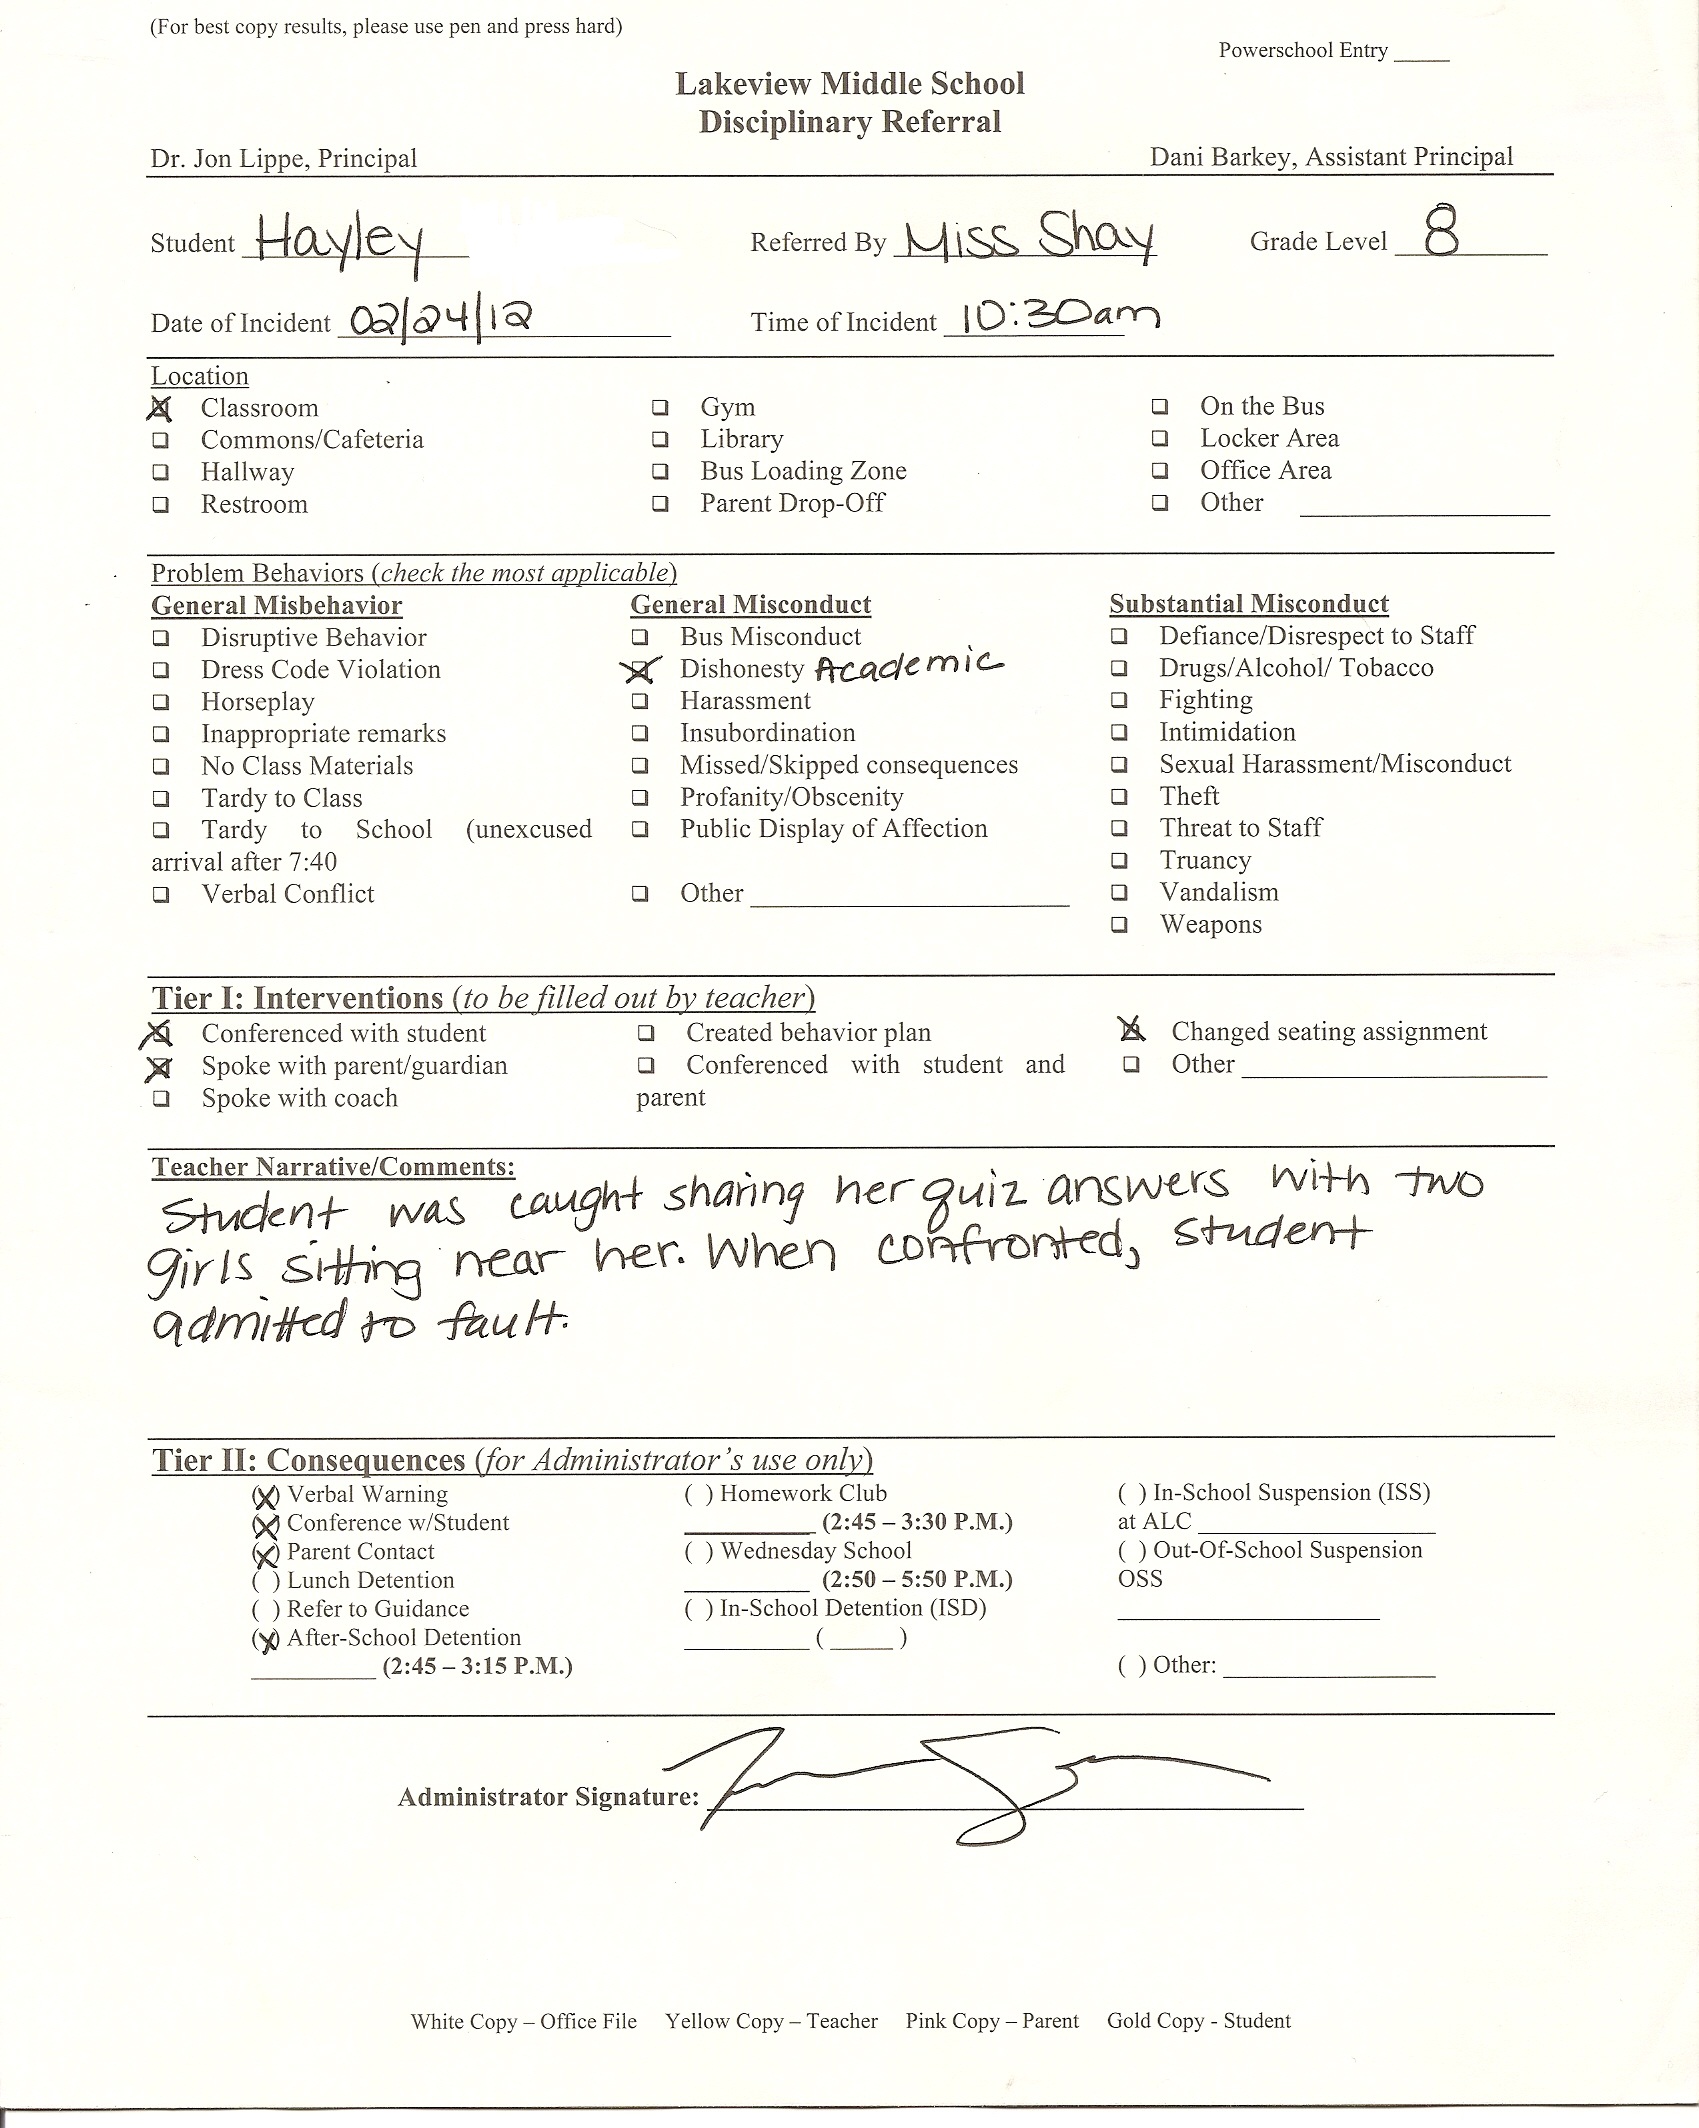 (For best copy results, please use pen and press hard)
Powerschool Entry _____
Lakeview Middle School
Disciplinary Referral
Dr. Jon Lippe, Principal Dani Barkey, Assistant Principal
Student Hayley Referred By Miss Shay Grade Level 8
Date of Incident 02/24/12 Time of Incident 10:30am
Location
Classroom Gym On the Bus
Commons/Cafeteria Library Locker Area
Hallway Bus Loading Zone Office Area
Restroom Parent Drop-Off Other
Problem Behaviors (check the most applicable)
General Misbehavior General Misconduct Substantial Misconduct
Disruptive Behavior Bus Misconduct Defiance/Disrespect to Staff
Dress Code Violation Dishonesty Academic Drugs/Alcohol/ Tobacco
Horseplay Harassment Fighting
Inappropriate remarks Insubordination Intimidation
No Class Materials Missed/Skipped consequences Sexual Harassment/Misconduct
Tardy to Class Profanity/Obscenity Theft
Tardy to School (unexcused Public Display of Affection Threat to Staff
arrival after 7:40 Truancy
Verbal Conflict Other Vandalism
Weapons
Tier I: Interventions (to be filled out by teacher)
Conferenced with student Created behavior plan Changed seating assignment
Spoke with parent/guardian Conferenced with student and Other
Spoke with coach parent
Teacher Narrative/Comments:
Student was caught sharing her quiz answers with two
girls sitting near her. When confronted, student
admitted to fault.
Tier II: Consequences (for Administrator's use only)
(X) Verbal Warning ( ) Homework Club ( ) In-School Suspension (ISS)
(X) Conference w/Student (2:45 – 3:30 P.M.) at ALC
(X) Parent Contact ( ) Wednesday School ( ) Out-Of-School Suspension
( ) Lunch Detention (2:50 – 5:50 P.M.) OSS
( ) Refer to Guidance ( ) In-School Detention (ISD)
(X) After-School Detention (_____)
(2:45 – 3:15 P.M.) ( ) Other:
Administrator Signature:
White Copy – Office File Yellow Copy – Teacher Pink Copy – Parent Gold Copy - Student